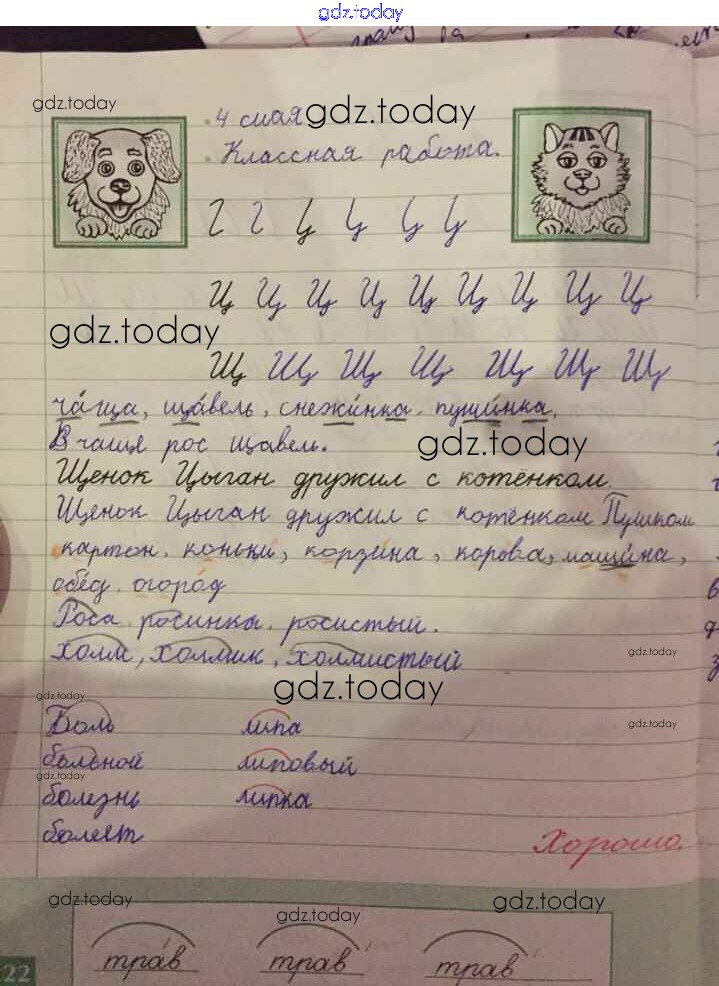 gdz.today
gdz.today
4 мая gdz.today
Классная работа.
Ц Ц Ц Ц Ц Ц Ц Ц Ц
gdz.today
Щ Щ Щ Щ Щ Щ Щ
ча́ща, ща́вель, снежи́нка, пуши́нка,
В чаще рос щавель.
gdz.today
Щенок Цыган дружил с котёнком
Щенок Цыган дружил с котёнком Пушком
картон, коньки, корзина, корова, машина,
обе́д, огоро́д
Роса, росинка, росистый.
холм, холмик, холмистый
gdz.today
gdz.today
gdz.today
Боль липа
gdz.today
больной липовый
gdz.today
болезнь липка
болеет
Хорошо.
gdz.today
gdz.today
gdz.today
тра́в трав трав
22